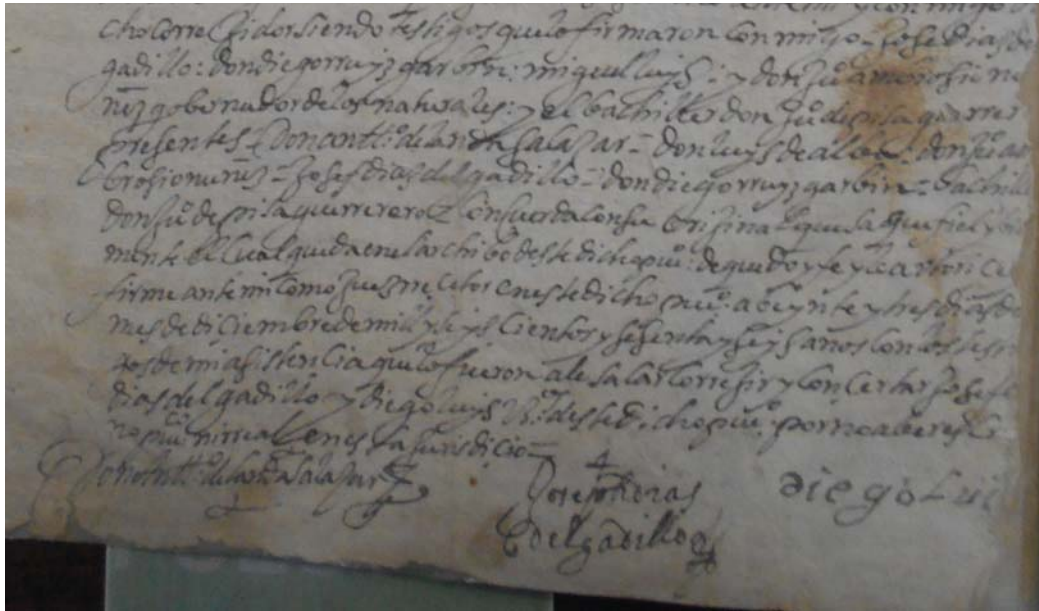 cho correxidor siendo testigos que lo firmaron con migo - Josef dias de
gadillo: don diego rruyz garbin: miguel luys: y don ju.º ambrosio nu
nez gobernador de los naturales: y el bachiller don ju.º de pisa guerrer
presentes - Don antt.º de landa salazar - don luys de don ju.º am
brosio nunez - Josef dias delgadillo - don diego rruyz garbin - bachille
don ju.º de pisa guerrero concuerda con su orijinal que saque fiel y
mente el cual queda en el archibo deste dicho pu.º de que doy fe y
firme ante mi como juez rrecetor en este dicho pu.º a beynte y tres dias de
mes de diciembre de mill y seys cientos y sesenta y seys anos con los testi
gos de mi asistencia que lo fueron a le sacar correxir y concertar Josef
dias delgadillo y diego luys deste dicho pu.º por no aber es
no pu.co ni rreal en esta jurisdicion
Don antt.º de landa salazar Josef dias diego Lui
delgadillo